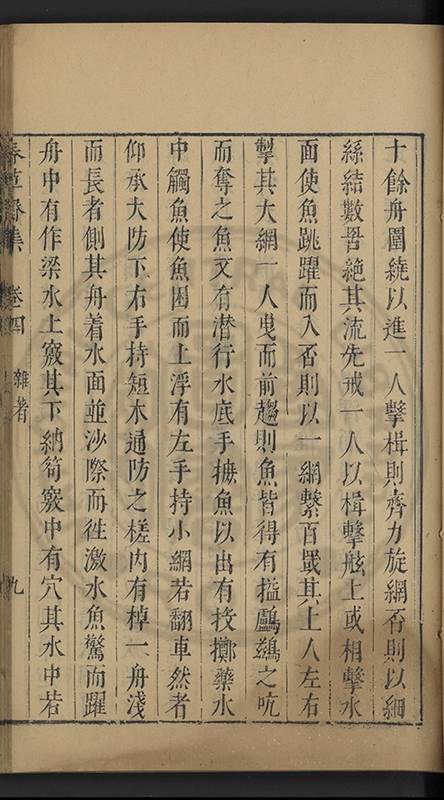 十餘舟圍繞以進一人擊楫則齊力旋網否則以細
絲結數罟絶其流先戒一人以楫擊舷上或相擊水
面使魚跳躍而入否則以一網繫百罬其上人左右
掣其大網一人曳而前趨則魚皆得有搤鸕鷀之吭
而奪之魚又有潜行水底手摭魚以出有投擲藥水
中觸魚使魚困而上浮有左手持小網若翻車然者
仰承大防下右手持短木通防之槎内有棹一舟淺
而長者側其舟着水面並沙際而徃激水魚驚而躍
舟中有作梁水上竅其下納笱竅中有穴其水中若
春草齋集 卷四 雜著 九